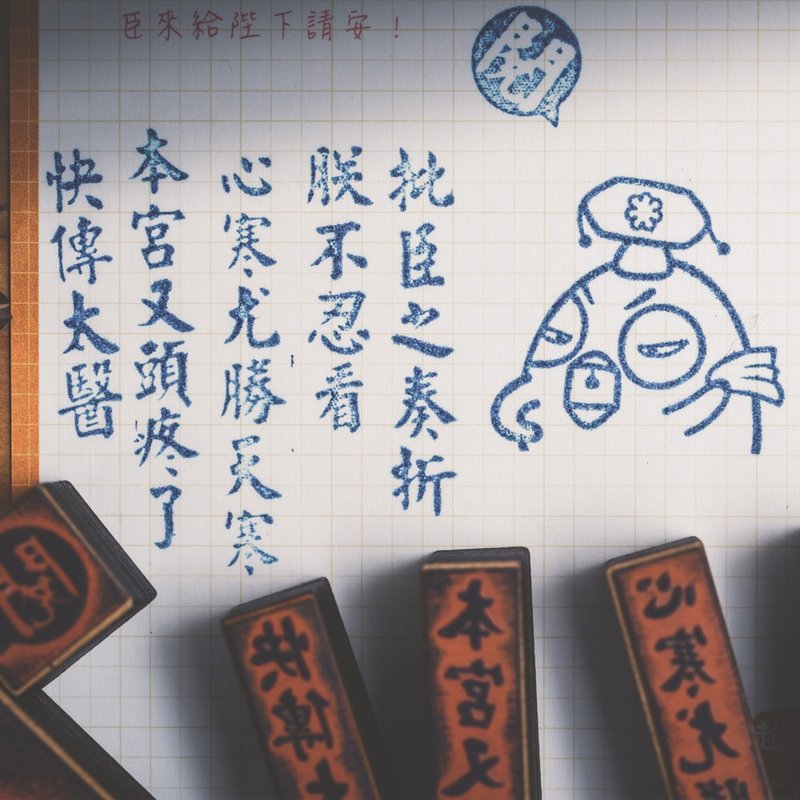 臣來給陛下請安！
閱
批臣之奏折
朕不忍看
心寒尤勝天寒
本宮又頭疼了
快傳太醫
閱
快傳太
本宮又
心寒尤勝